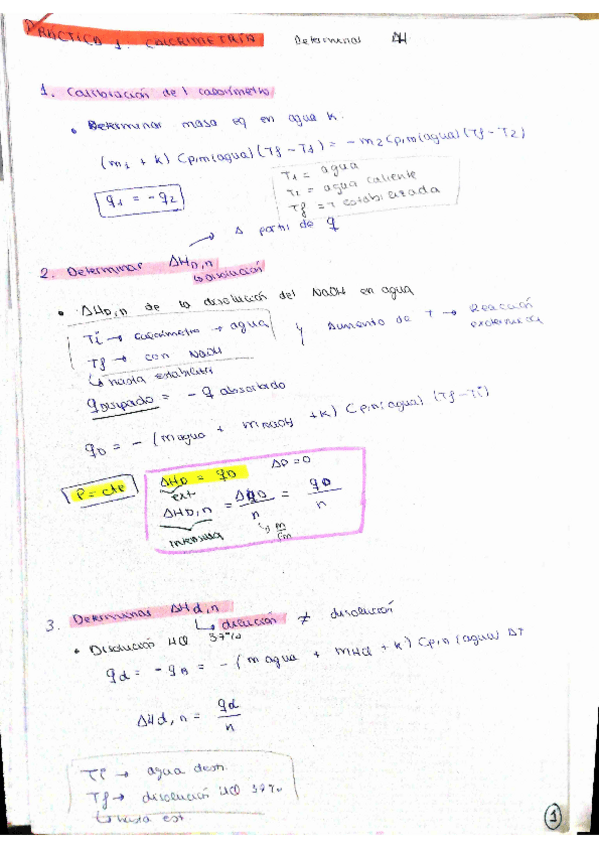 PRÁCTICA 1. CALORIMETRÍA Determinar ΔH
1. Calibración del calorímetro
• Determinar masa eq en agua k.
(m1 + k) Cp,m(agua) (Tf - T1) = - m2 Cp,m(agua) (Tf - T2)
q1 = - q2
T1 = agua
T2 = agua caliente
Tf = T estabilizada
→ A partir de q
2. Determinar ΔHD,n
↳ disolución
• ΔHD,n de la disolución del NaOH en agua
Ti → calorímetro + agua
Tf → con NaOH
↳ hasta estabilizar
y Aumento de T → Reacción exotérmica
qDisipado = - q absorbido
qD = - (magua + mNaOH + k) Cp,m(agua) (Tf - Ti)
P = cte
ΔHD = qD ΔP = 0
ext
ΔHD,n = ΔHD/n = qD/n
↳ m/Pm
intensiva
3. Determinar ΔHd,n
↳ dilución ≠ disolución
• Disolución HCl 37%
qd = - qB = - (magua + mHCl + k) Cp,m(agua) ΔT
ΔHd,n = qd/n
Ti → agua dest.
Tf → disolución HCl 37%
↳ hasta est.
1